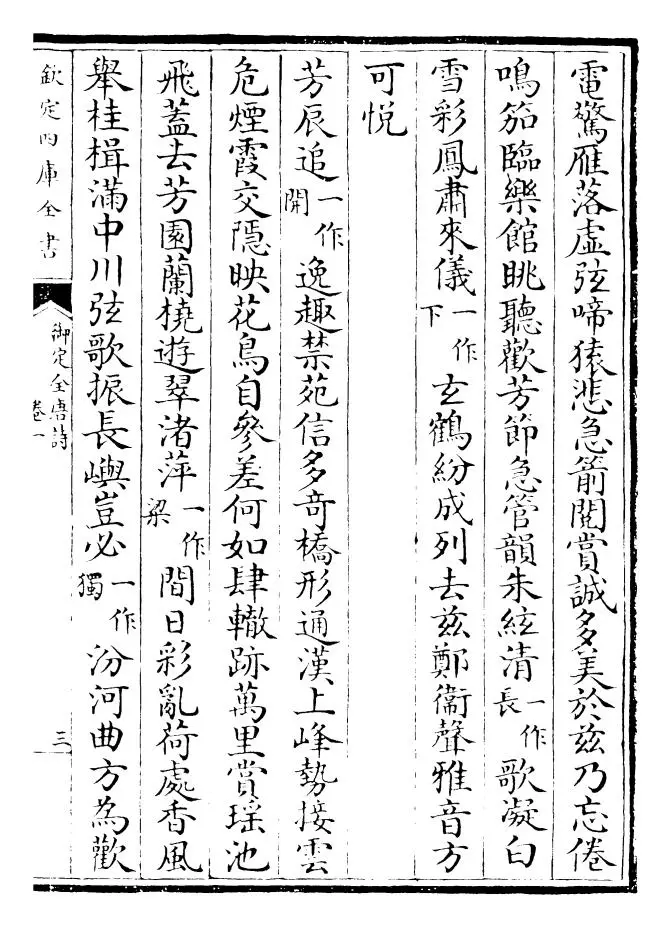 電驚雁落虛弦啼猿悲急箭閱賞誠多美於兹乃忘倦
鳴笳臨樂館眺聽歡芳節急管韻朱絃清一作長歌凝白
雪彩鳳肅來儀一作下玄鶴紛成列去兹鄭衞聲雅音方
可悦
芳辰追一作開逸趣禁苑信多竒橋形通漢上峰勢接雲
危煙霞交隱映花鳥自參差何如肆轍跡萬里賞瑶池
飛蓋去芳園蘭橈遊翠渚萍一作梁間日彩亂荷處香風
舉桂楫滿中川弦歌振長嶼豈必一作獨汾河曲方為歡
欽定四庫全書
御定全唐詩
卷一
三